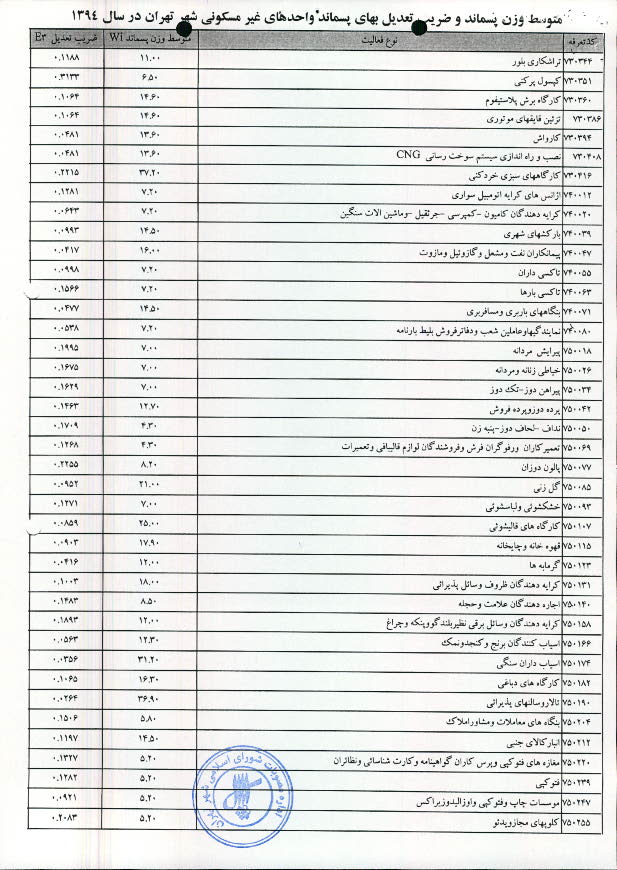 متوسط وزن پسماند و ضریب تعدیل بهای پسماند واحدهای غیر مسکونی شهر تهران در سال ۱۳۹٤
کدتعرفه نوع فعالیت متوسط وزن پسماند Wi ضریب تعدیل E۳
۷۳۰۳۴۴ تراشکاری بلور ۱۱.۰۰ ۰.۱۱۸۸
۷۳۰۳۵۱ کپسول پرکنی ۶.۵۰ ۰.۳۱۳۳
۷۳۰۳۶۰ کارگاه برش پلاستیفوم ۱۴.۶۰ ۰.۱۰۶۴
۷۳۰۳۸۶ تزئین قایقهای موتوری ۱۴.۶۰ ۰.۱۰۶۴
۷۳۰۳۹۴ کارواش ۱۳.۶۰ ۰.۰۴۸۱
۷۳۰۴۰۸ نصب و راه اندازی سیستم سوخت رسانی CNG ۱۳.۶۰ ۰.۰۴۸۱
۷۳۰۴۱۶ کارگاههای سبزی خردکنی ۳۷.۲۰ ۰.۲۲۱۵
۷۴۰۰۱۲ اژانس های کرایه اتومبیل سواری ۷.۲۰ ۰.۱۲۸۱
۷۴۰۰۲۰ کرایه دهندگان کامیون -کمپرسی -جرثقیل -وماشین الات سنگین ۷.۲۰ ۰.۰۶۴۳
۷۴۰۰۳۹ بارکشهای شهری ۱۴.۵۰ ۰.۰۹۹۳
۷۴۰۰۴۷ پیمانکاران نفت ومشعل وگازوئیل ومازوت ۱۶.۰۰ ۰.۰۴۱۷
۷۴۰۰۵۵ تاکسی داران ۷.۲۰ ۰.۰۹۹۸
۷۴۰۰۶۳ تاکسی بارها ۷.۲۰ ۰.۱۵۶۶
۷۴۰۰۷۱ بنگاههای باربری ومسافربری ۱۴.۵۰ ۰.۰۴۷۷
۷۴۰۰۸۰ نمایندگیهاوعاملین شعب ودفاترفروش بلیط بارنامه ۷.۲۰ ۰.۰۵۳۸
۷۵۰۰۱۸ پیرایش مردانه ۷.۰۰ ۰.۱۹۹۵
۷۵۰۰۲۶ خیاطی زنانه ومردانه ۷.۰۰ ۰.۱۶۷۵
۷۵۰۰۳۴ پیراهن دوز-تک دوز ۷.۰۰ ۰.۱۶۲۹
۷۵۰۰۴۲ پرده دوزوپرده فروش ۱۲.۷۰ ۰.۱۴۶۳
۷۵۰۰۵۰ نداف -لحاف دوز-پنبه زن ۴.۳۰ ۰.۱۷۰۹
۷۵۰۰۶۹ تعمیرکاران ورفوگران فرش وفروشندگان لوازم قالیبافی وتعمیرات ۴.۳۰ ۰.۱۲۶۸
۷۵۰۰۷۷ پالون دوزان ۸.۲۰ ۰.۲۲۵۵
۷۵۰۰۸۵ گل زنی ۲۱.۰۰ ۰.۰۹۵۲
۷۵۰۰۹۳ خشکشوئی ولباسشوئی ۷.۰۰ ۰.۱۲۷۱
۷۵۰۱۰۷ کارگاه های قالیشوئی ۲۵.۰۰ ۰.۰۸۵۹
۷۵۰۱۱۵ قهوه خانه وچایخانه ۱۷.۹۰ ۰.۰۹۰۳
۷۵۰۱۲۳ گرمابه ها ۱۲.۰۰ ۰.۰۴۱۶
۷۵۰۱۳۱ کرایه دهندگان ظروف وسائل پذیرائی ۱۸.۰۰ ۰.۱۰۰۳
۷۵۰۱۴۰ اجاره دهندگان علامت وحجله ۸.۵۰ ۰.۱۴۸۳
۷۵۰۱۵۸ کرایه دهندگان وسائل برقی نظیربلندگووپنکه وچراغ ۱۲.۰۰ ۰.۱۸۹۳
۷۵۰۱۶۶ اسیاب کنندگان برنج وکنجدونمک ۱۲.۳۰ ۰.۰۵۶۳
۷۵۰۱۷۴ اسیاب داران سنگی ۳۱.۲۰ ۰.۰۳۵۶
۷۵۰۱۸۲ کارگاه های دباغی ۱۶.۳۰ ۰.۱۰۶۵
۷۵۰۱۹۰ تالاروسالنهای پذیرائی ۳۶.۹۰ ۰.۰۲۶۴
۷۵۰۲۰۴ بنگاه های معاملات ومشاوراملاک ۵.۸۰ ۰.۱۵۰۶
۷۵۰۲۱۲ انبارکالای جنبی ۱۴.۵۰ ۰.۱۱۹۷
۷۵۰۲۲۰ مغازه های فتوکپی وپرس کاران گواهینامه وکارت شناسائی ونظائران ۵.۲۰ ۰.۱۳۲۷
۷۵۰۲۳۹ فتوکپی ۵.۲۰ ۰.۱۲۸۲
۷۵۰۲۴۷ موسسات چاپ وفتوکپی واوزالیدوزیراکس ۵.۲۰ ۰.۰۹۲۱
۷۵۰۲۵۵ کلوپهای مجازویدئو ۵.۲۰ ۰.۲۰۸۳
اداره مصوبات شورای اسلامی شهر تهران